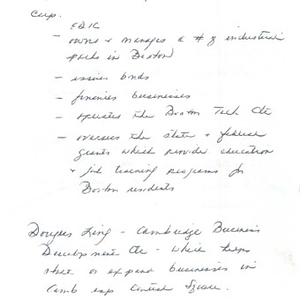 Corp.
EDIC
- owns & manages a # of industrial
parks in Boston
- issues bonds
- finances businesses
- operates the Boston Tech Ctr
- oversees the state & federal
grants which provide education
& job training programs for
Boston residents
Douglas Ling - Cambridge Business
Development Ctr - which helps
start or expand businesses in
Camb esp Central Square.